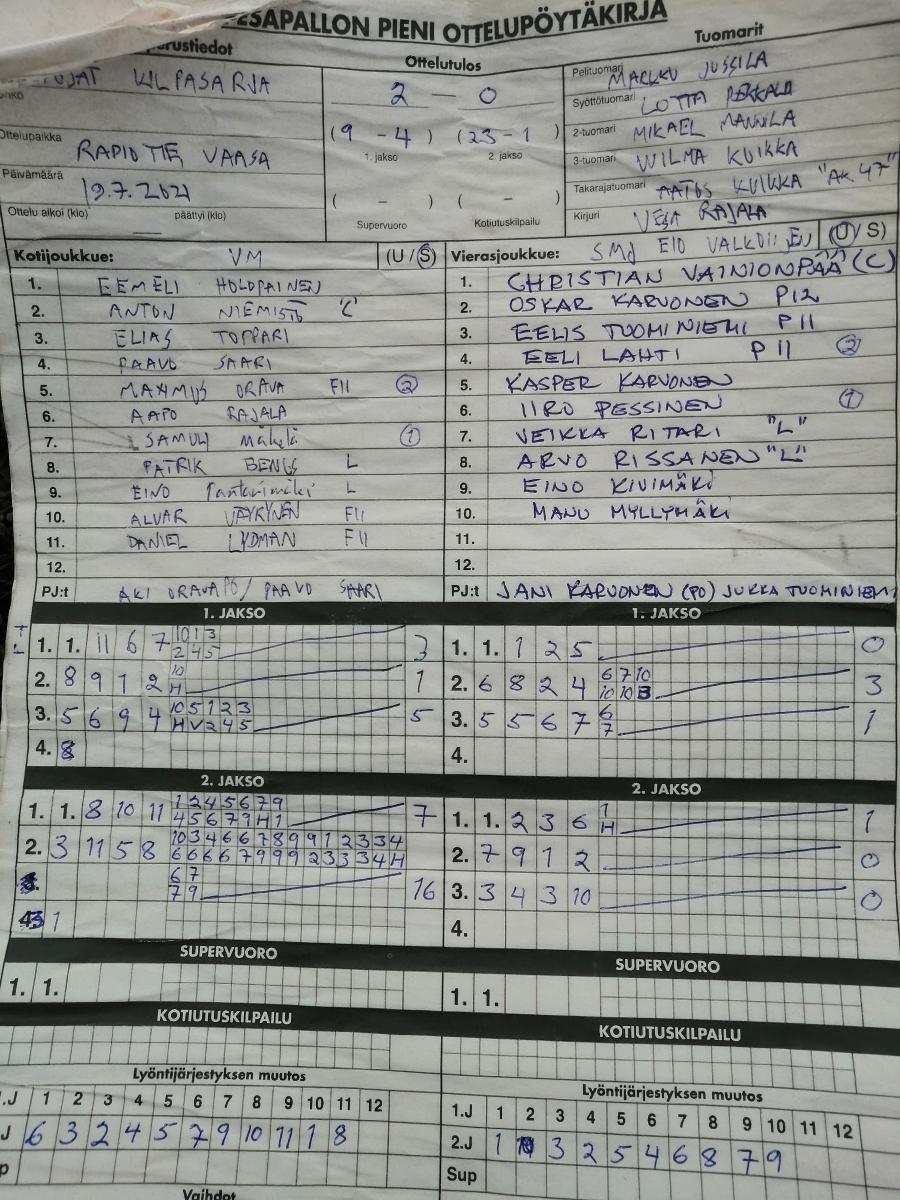 PESÄPALLON PIENI OTTELUPÖYTÄKIRJA
Perustiedot
KILPASARJA
Ottelupaikka
RADIOTIE VAASA
Päivämäärä
19.7.2021
Ottelu alkoi (klo) päättyi (klo)
Ottelutulos
2 — 0
(9 - 4) (23 - 1)
1. jakso 2. jakso
( - ) ( - )
Supervuoro Kotiutuskilpailu
Tuomarit
Pelituomari MARKKU JUSSILA
Syöttötuomari LOTTA PEKKALA
2-tuomari MIKAEL MANNILA
3-tuomari WILMA KUIKKA
Takarajatuomari AATOS KUIKKA "AK 47"
Kirjuri VESA RAJALA
Kotijoukkue: VM (U / S)
1. EEMELI HOLOPAINEN
2. ANTON NIEMISTÖ C
3. ELIAS TOPPARI
4. PAAVO SAARI
5. MAXIMUS ORAVA F11 2
6. AAPO RAJALA
7. SAMULI Mäkelä 1
8. PATRIK BENGS L
9. EINO Pantarimäki L
10. ALVAR VÄYRYNEN F11
11. DANIEL LYDMAN F11
12.
PJ:t AKI ORAVA PO / PAAVO SAARI
Vierasjoukkue: SMJ E10 VALKOINEN (U / S)
1. CHRISTIAN VAINIONPÄÄ (C)
2. OSKAR KARVONEN P12
3. EELIS TUOMINIEMI P11
4. EELI LAHTI P11 2
5. KASPER KARVONEN
6. IIRO PESSINEN 1
7. VEIKKA RITARI "L"
8. ARVO RISSANEN "L"
9. EINO KIVIMÄKI
10. MANU MYLLYMÄKI
11.
12.
PJ:t JANI KARVONEN (PO) JUKKA TUOMINIEMI
1. JAKSO
1. 1. 11 6 7 10 1 3 3
2 4 5
2. 8 9 1 2 10 1
H
3. 5 6 9 4 10 5 1 2 3 5
H V 2 4 5
4. 8
1. JAKSO
1. 1. 1 2 5 0
2. 6 8 2 4 6 7 10 3
10 10 3
3. 5 5 6 7 6 1
7
4.
2. JAKSO
1. 1. 8 10 11 1 2 4 5 6 7 9 7
4 5 6 7 9 H 1
2. 3 11 5 8 10 3 4 6 6 7 8 9 9 1 2 3 3 4
6 6 6 6 7 9 9 9 2 3 3 3 4 H
6 7 16
7 9
3 1
2. JAKSO
1. 1. 2 3 6 1 1
H
2. 7 9 1 2 0
3. 3 4 3 10 0
4.
SUPERVUORO
1. 1.
SUPERVUORO
1. 1.
KOTIUTUSKILPAILU
KOTIUTUSKILPAILU
Lyöntijärjestyksen muutos
1.J 1 2 3 4 5 6 7 8 9 10 11 12
J 6 3 2 4 5 7 9 10 11 1 8
p
Vaihdot
Lyöntijärjestyksen muutos
1.J 1 2 3 4 5 6 7 8 9 10 11 12
2.J 1 10 3 2 5 4 6 8 7 9
Sup